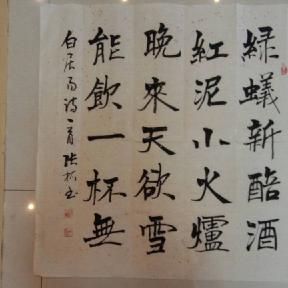 綠蟻新醅酒
紅泥小火爐
晚來天欲雪
能飲一杯無
白居易詩一首